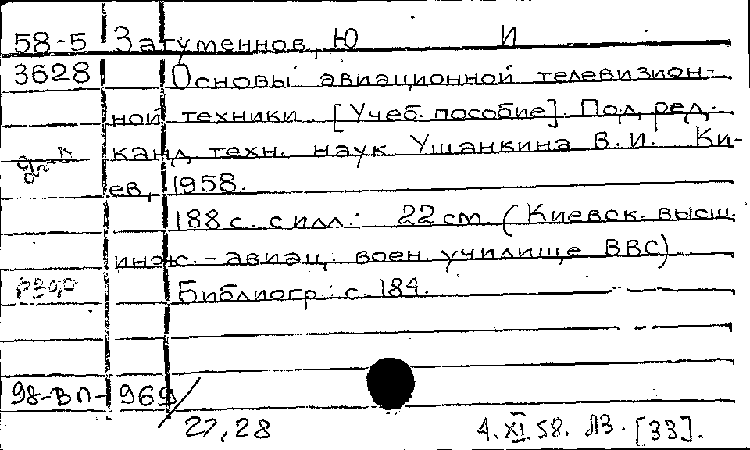 58-5 Затуменнов, Ю И
3628 Основы авиационной телевизион-
ной техники. [Учеб. пособие]. Под ред.
канд. техн. наук Ушанкина В.И. Ки-
ев, 1958.
188 с. с илл. 22 см. (Киевск. высш.
инж.-авиац. воен. училище ВВС)
Библиогр: с. 184.
98-ВП-969
27,28 4.XI.58. ЛЗ. [33].